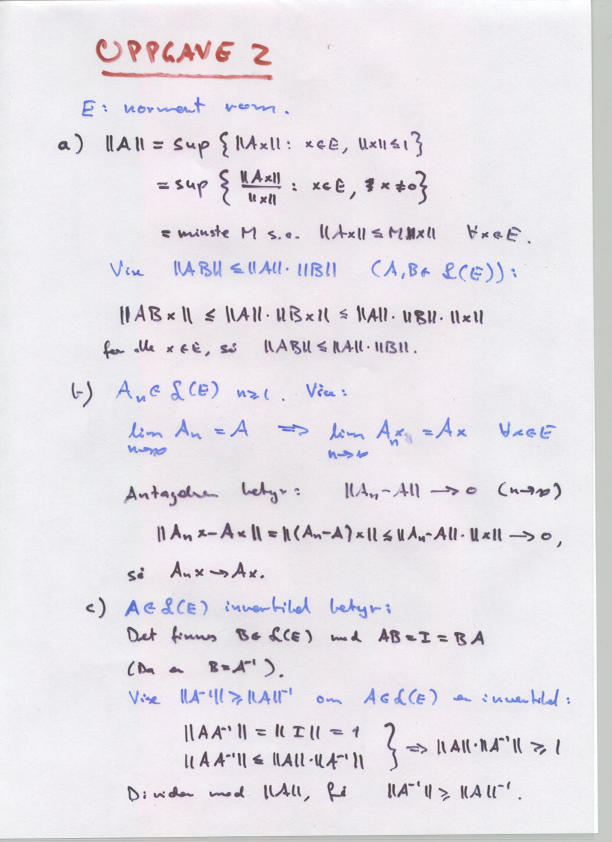 OPPGAVE 2
E: normert rom.
a) ||A|| = sup { ||Ax|| : x∈E, ||x||≤1 }
= sup { ||Ax|| / ||x|| : x∈E, x≠0 }
= minste M s.a. ||Ax|| ≤ M||x|| ∀x∈E.
Vise ||AB|| ≤ ||A||·||B|| (A,B∈ L(E)):
||ABx|| ≤ ||A||·||Bx|| ≤ ||A||·||B||·||x||
for alle x∈E, så ||AB|| ≤ ||A||·||B||.
b) Aₙ∈ L(E) n≥1. Vise:
lim Aₙ = A ⟹ lim Aₙx = Ax ∀x∈E
n→∞ n→∞
Antagelsen betyr: ||Aₙ-A|| → 0 (n→∞)
||Aₙx-Ax|| = ||(Aₙ-A)x|| ≤ ||Aₙ-A||·||x|| → 0,
så Aₙx → Ax.
c) A∈ L(E) invertibel betyr:
Det finnes B∈ L(E) med AB = I = BA
(Da er B=A⁻¹).
Vise ||A⁻¹|| ≥ ||A||⁻¹ om A∈ L(E) er invertibel:
||AA⁻¹|| = ||I|| = 1
||AA⁻¹|| ≤ ||A||·||A⁻¹|| } ⟹ ||A||·||A⁻¹|| ≥ 1
Divider med ||A||, få ||A⁻¹|| ≥ ||A||⁻¹.